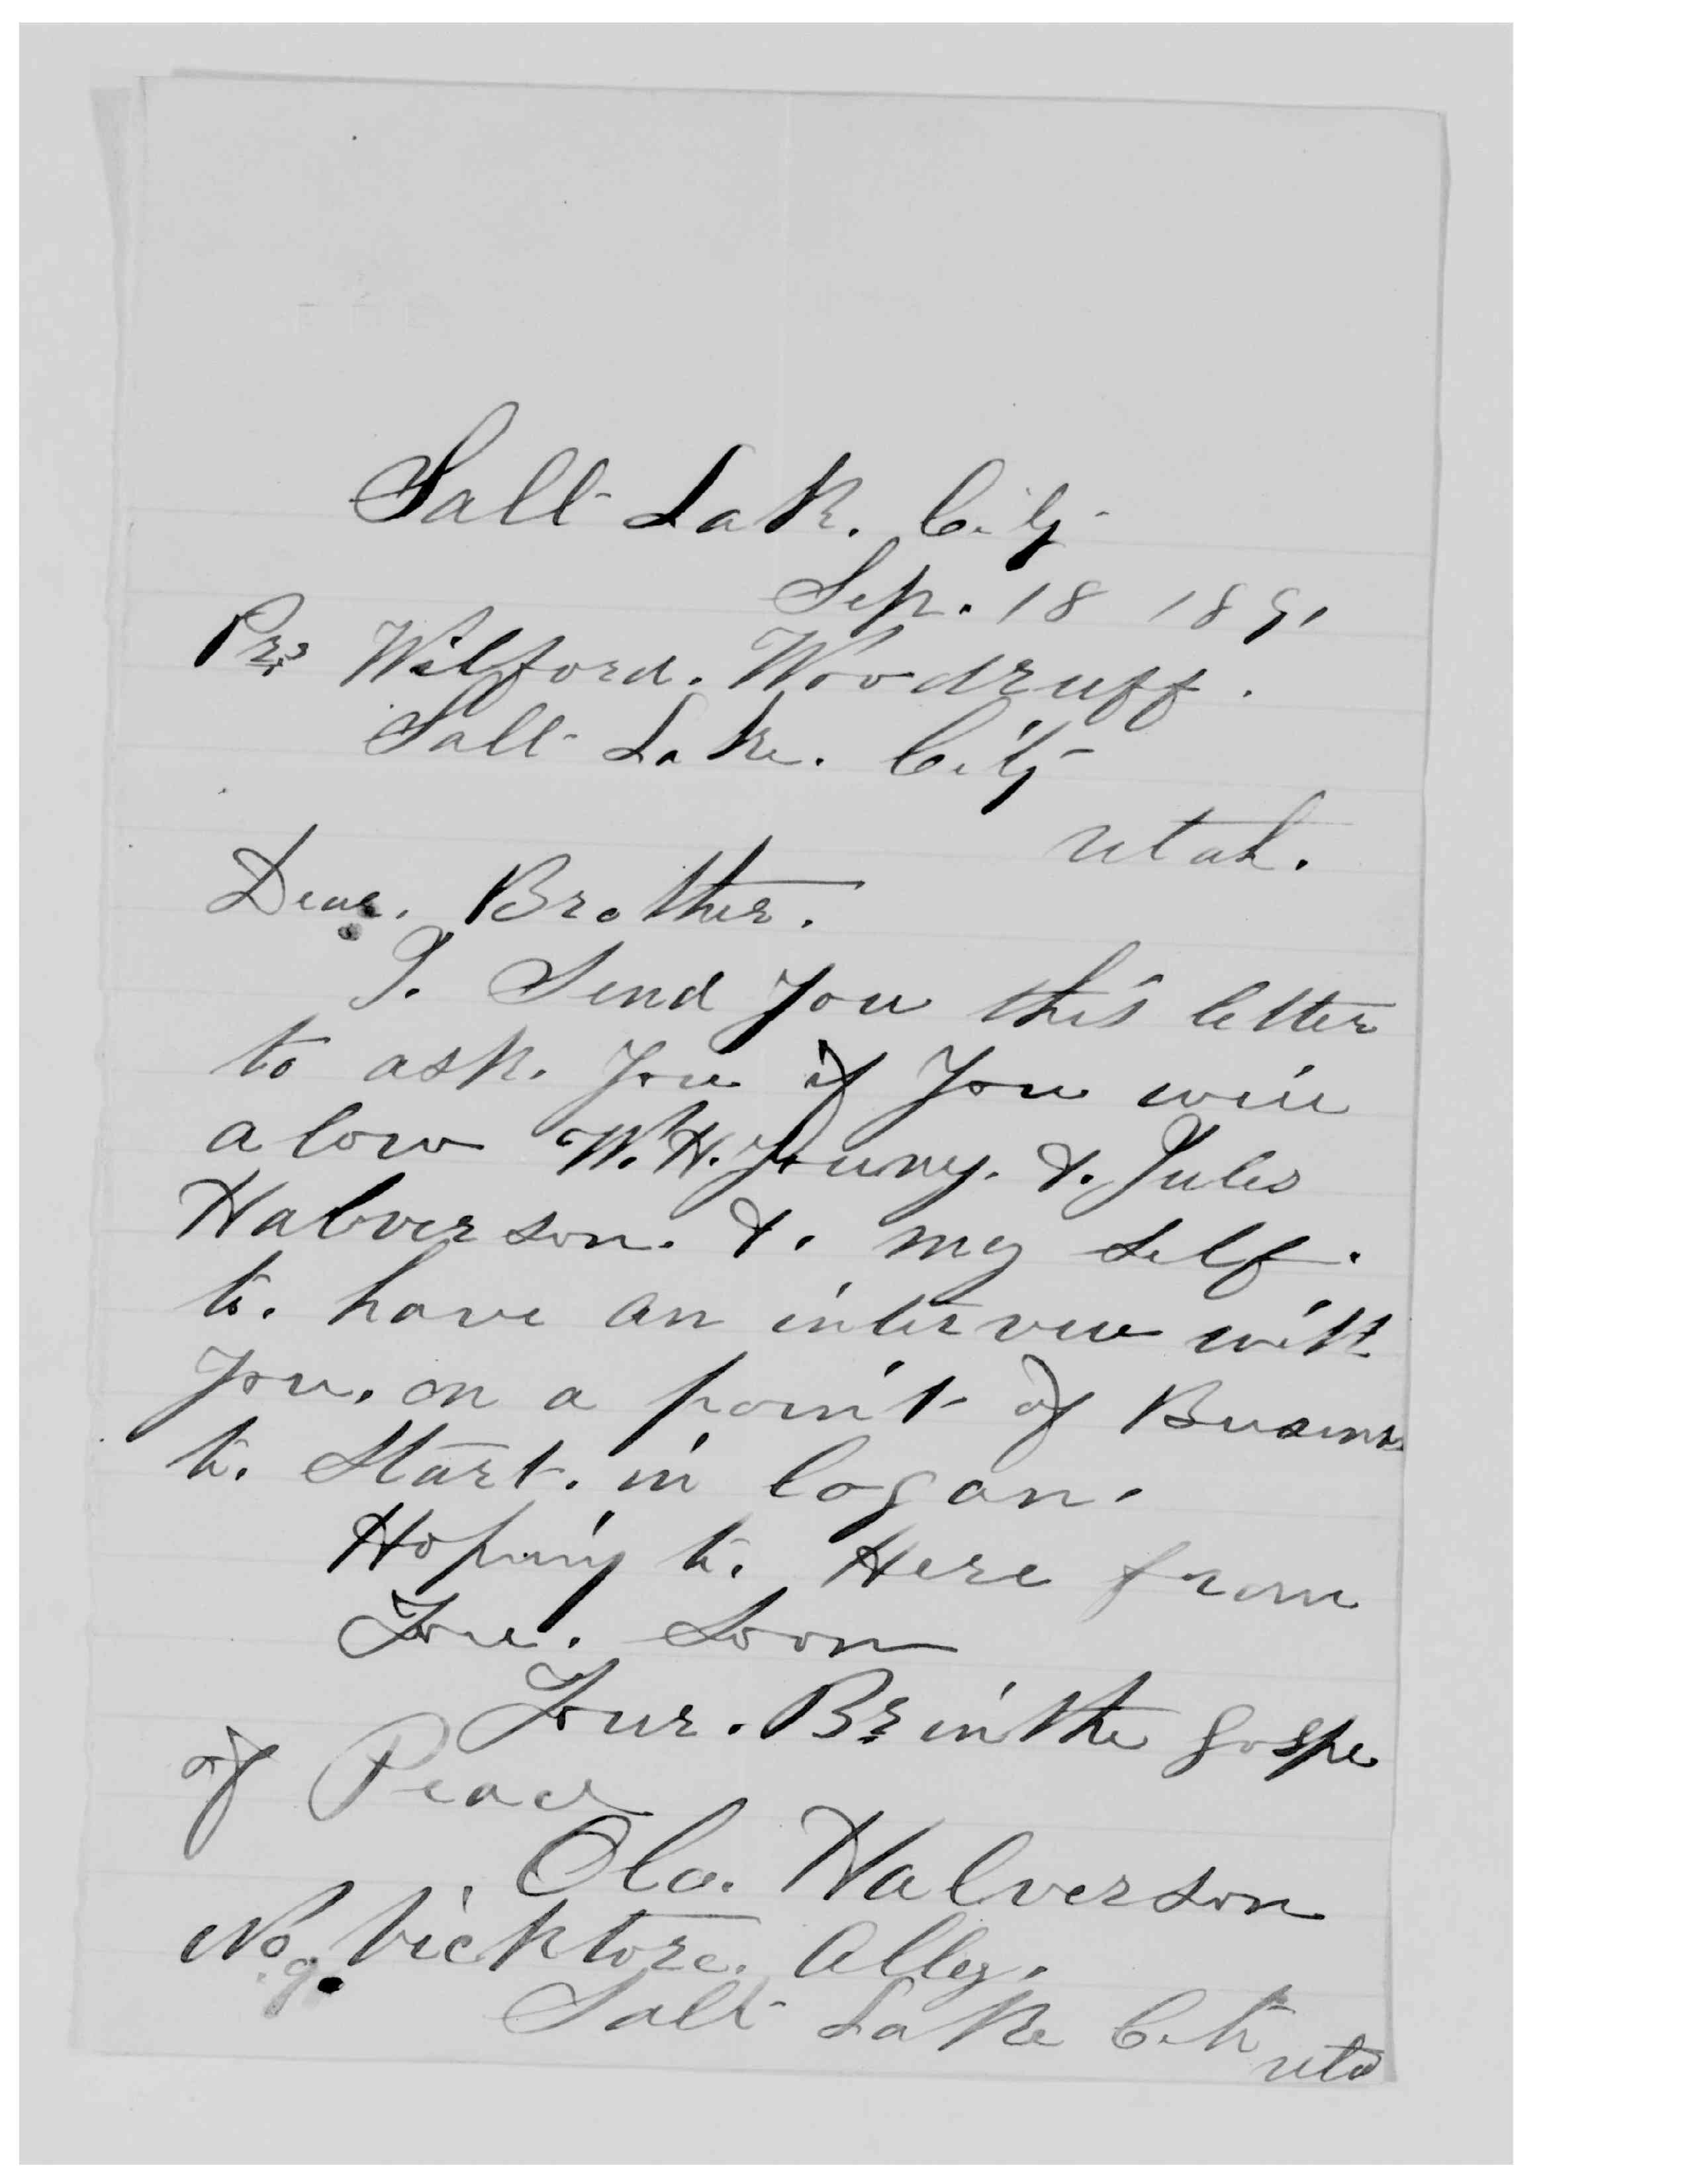 Salt Lak. City
Sep. 18 1891
Prs Wilford. Woodruff.
Salt Lake. City
utah.
Dear. Brother.
I. Send you this letter
to ask. you if you will
alow W. H. Young. &. Jules
Halverson. &. my self.
to. have an interview with
you. on a point of Business
to. Start. in logan.
Hoping to. Here from
You. Soon
Your. Br in the gospe
of Peace
Ola. Halverson
No. 9. Vicktore. Alley.
Salt Lake City
uta